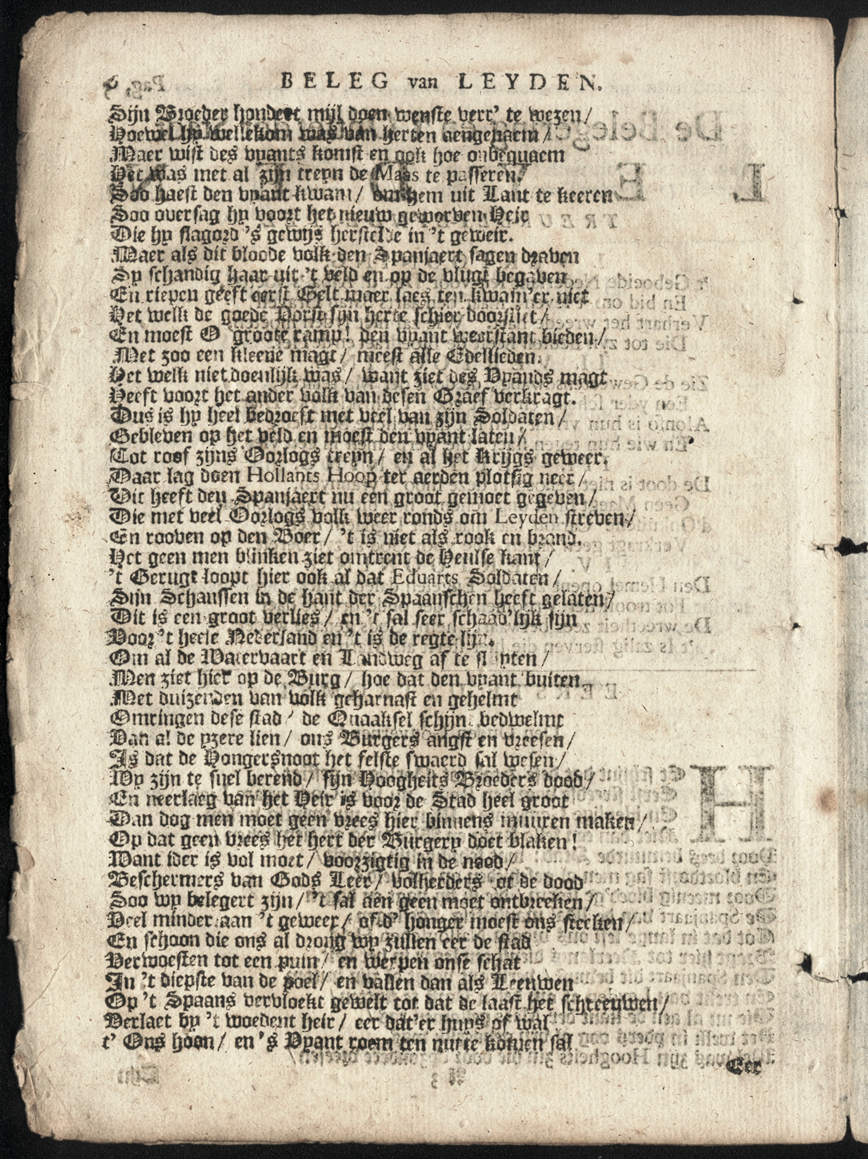 BELEG van LEYDEN.
Sijn Broeder hondert mijl doen wenste verr' te wezen /
Hoewel hy wellekom was van herten aengenaem /
Maer wist des vyants komst en ook hoe onbequaem
Het was met al zijn treyn de Maas te passeren.
Soo haest den vyant kwam / om hem uit Lant te keeren
Soo oversag hy voort het nieuw geworven Heir
Die hy slagord's gewijs herstelde in 't geweir.
Maer als dit bloode volk den Spanjaert sagen draven
Sy schandig haar uit 't veld en op de vlugt begaven
En riepen geeft eerst Gelt maer laes ten kwam'er niet
Het welk de goede Vorst sijn herte schier doorsliet /
En moest O groote ramp! den vyant weerstant bieden /
Met zoo een kleene magt / meest alle Edellieden.
Het welk niet doenlijk was / want ziet des Vyands magt
Heeft voort het ander volk van desen Graef verkragt.
Dus is hy heel bedroeft met veel van zijn Soldaten /
Gebleven op het veld en moest den vyant laten /
Tot roof zijns Oorlogs treyn / en al het Krijgs geweer.
Daar lag doen Hollants Hoop ter aerden plotsig neer /
Dit heeft den Spanjaert nu een groot gemoet gegeven /
Die met veel Oorlogs volk weer ronds om Leyden streven /
En rooven op den Boer / 't is niet als rook en brand.
Het geen men blinken ziet omtrent de Heulse kant /
't Gerugt loopt hier ook al dat Eduarts Soldaten /
Sijn Schanssen in de hant der Spaanschen heeft gelaten /
Dit is een groot verlies / en 't sal seer schaad'lijk sijn
Voor 't heele Nederland en 't is de regte lijn.
Om al de Watervaart en Landweg af te sluyten /
Men ziet hier op de Burg / hoe dat den vyant buiten
Met duizenden van volk geharnast en gehelmt
Omringen dese stad / de Quaaksel schijnt bedwelmt
Dan al de yzere lien / ons Burgers angst en vreesen /
Is dat de Hongersnoot het felste swaerd sal wesen /
Wy zijn te snel berend / sijn Hoogheits Broeders dood /
En neerlaeg van het Heir is voor de Stad heel groot
Dan dog men moet geen vrees hier binnens muuren maken /
Op dat geen vrees het hert der Burgery doet blaken!
Want ider is vol moet / voorzigtig in de nood /
Beschermers van Gods Leer / volherders tot de dood
Soo wy belegert zijn / 't sal aen geen moet ontbreeken /
Veel minder aan 't geweer / of d' honger moest ons steeken /
En schoon die ons al drong wy zullen eer de stad
Verwoesten tot een puin / en werpen onse schat
In 't diepste van de poel / en vallen dan als Leeuwen
Op 't Spaans vervloekt gewelt tot dat de laast het schreeuwen /
Verlaet by 't woedent heir / eer dat'er huys of wal
t' Ons hoon / en 's Vyant roem ten nutte komen sal
Eer